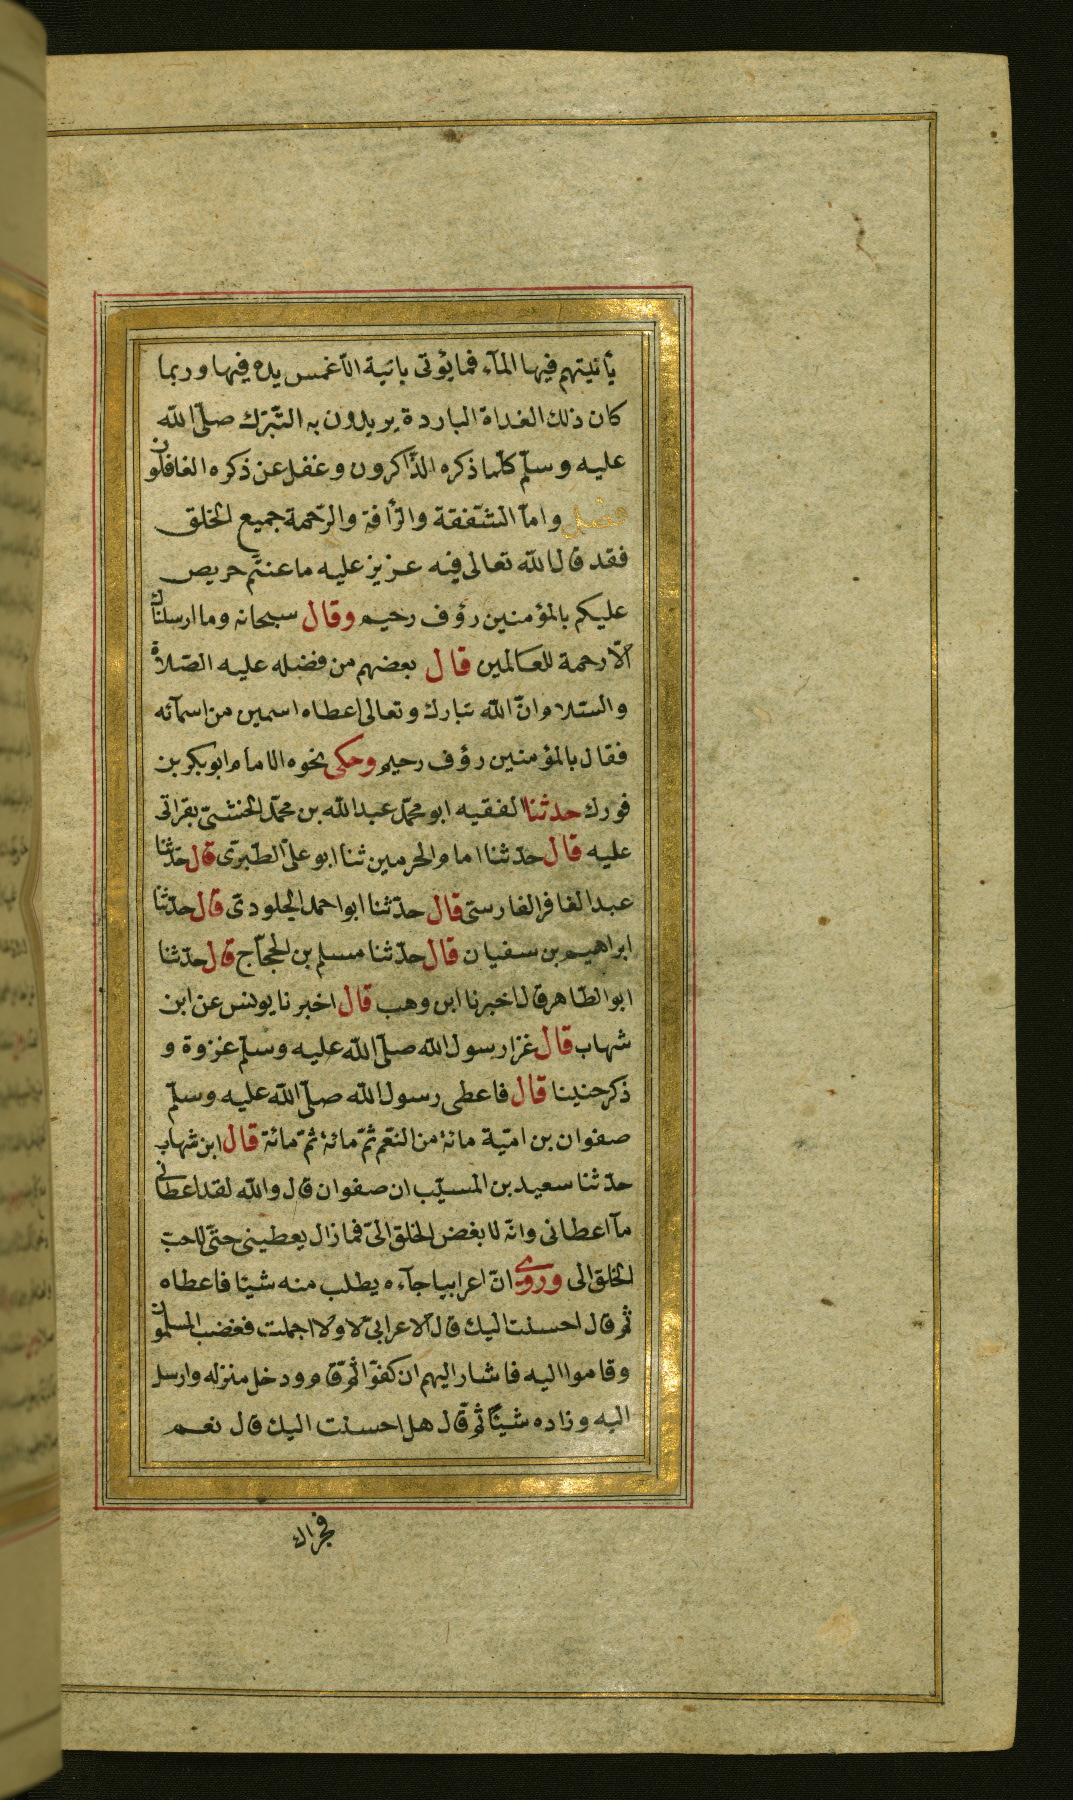 بأنيتهم فيها المآء فما يؤتى بانية الّا غمس يده فيها وربما
كان ذلك الغداة الباردة يريدون به التبّرك صلّى الله
عليه وسلّم كلّما ذكره الذّاكرون وغفل عن ذكره الغافلون
فصل وامّا الشفقة والرّأفة والرّحمة جميع الخلق
فقد قال الله تعالى فيه عزيز عليه ما عنتّم حريص
عليكم بالمؤمنين رؤف رحيم وقال سبحانه وما ارسلناك
الّا رحمة للعالمين قال بعضهم من فضله عليه الصّلاة
والسّلام انّ الله تبارك وتعالى اعطاه اسمين من اسمآئه
فقال بالمؤمنين رؤف رحيم وحكى نحوه الامام ابوبكر بن
فورك حدثنا الفقيه ابو محمّد عبد الله بن محمّد الخشنىّ بقراتى
عليه قال حدّثنا امام الحرمين ثنا ابو علىّ الطّبرى قال حدّثنا
عبد الغافر الفارسىّ قال حدّثنا ابو احمد الجلودىّ قال حدّثنا
ابراهيم بن سفيان قال حدّثنا مسلم بن الحجّاج قال حدّثنا
ابو الطّاهر قال اخبرنا ابن وهب قال اخبرنا يونس عن ابن
شهاب قال غزا رسول الله صلّى الله عليه وسلّم غزوة و
ذكر حنينا قال فاعطى رسول الله صلّى الله عليه وسلّم
صفوان بن اميّة مائة من النّعم ثمّ مائة ثمّ مائة قال ابن شهاب
حدّثنا سعيد بن المسيّب ان صفوان قال والله لقد اعطانى
مآ اعطانى وانّه لابغض الخلق الىّ فما زال يعطينى حتّى لاحبّ
الخلق الى وروى انّ اعرابيا جآءه يطلب منه شيئا فاعطاه
ثم قال احسنت اليك قال الاعرابىّ لا ولا اجملت فغضب المسلمون
وقاموا اليه فاشار اليهم ان كفوّا ثمّ قام ودخل منزله وارسل
اليه وزاده شيئًا ثم قال هل احسنت اليك قال نعم
فجزاك